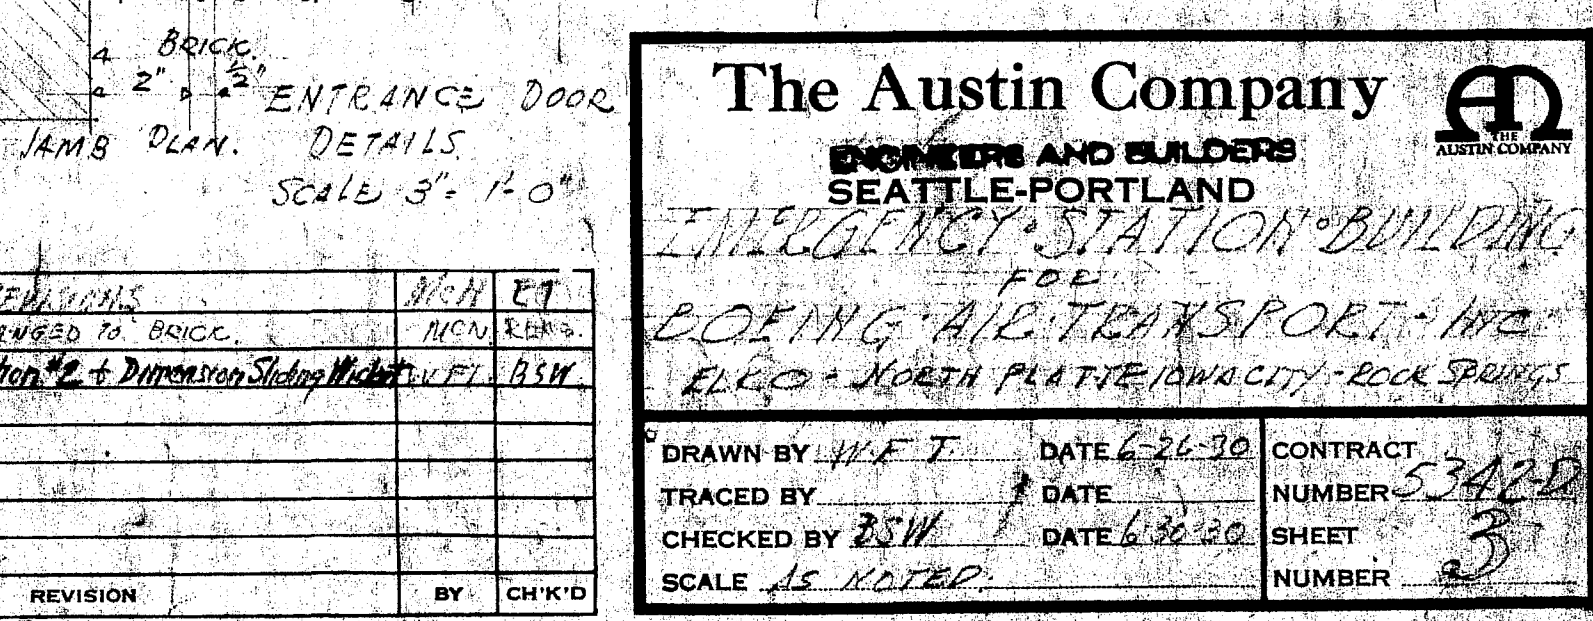 BRICK.
2" 1/2"
ENTRANCE DOOR
JAMB PLAN. DETAILS.
SCALE 3" = 1'-0"
MCN
ANGED TO BRICK. MCN.
tion #2 + Dimension Sliding Wicket W.F.T. BSW.
REVISION BY CH'K'D
The Austin Company
THE
AUSTIN COMPANY
ENGINEERS AND BUILDERS
SEATTLE-PORTLAND
EMERGENCY·STATION·BUILDING
FOR
BOEING·AIR·TRANSPORT·INC·
ELKO - NORTH PLATTE IOWA CITY - ROCK SPRINGS
DRAWN BY W.F.T. DATE 6-26-30
TRACED BY DATE
CHECKED BY BSW DATE 6-30-30
SCALE AS NOTED.
CONTRACT
NUMBER 5342-D
SHEET
NUMBER 3